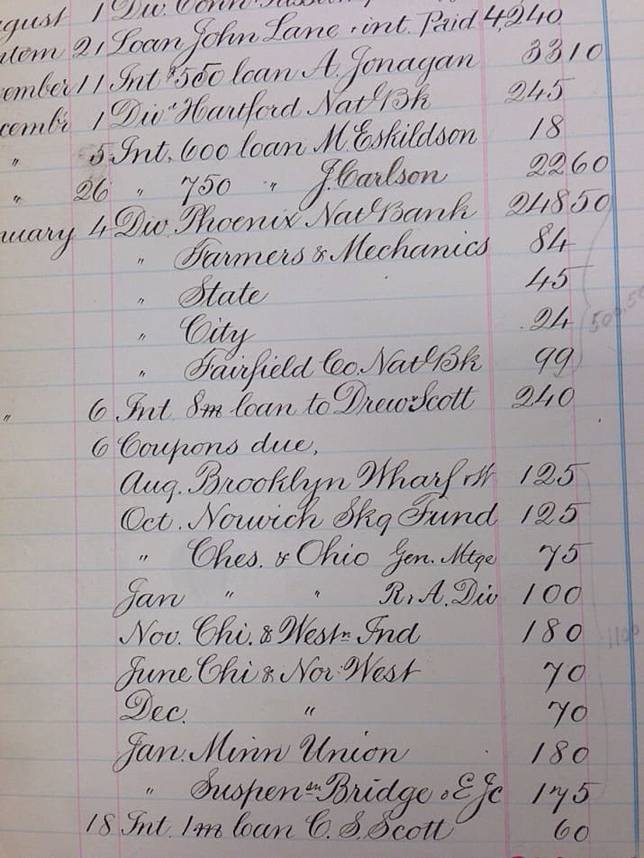 1 Div. Conn.
21 Loan John Lane int. Paid 4,240
11 Int $550 loan A. Jonagan 33 10
1 Div. Hartford Nat'l Bk 245
" 5 Int. 600 loan M. Eskildson 18
" 26 " 750 " J. Carlson 22 60
4 Div. Phoenix Nat'l Bank 248 50
" Farmers & Mechanics 84
" State 45
" City 24
" Fairfield Co. Nat'l Bk 99
" 6 Int 8m loan to Drew & Scott 240
6 Coupons due,
Aug. Brooklyn Wharf 125
Oct. Norwich Skg Fund 125
" Ches. & Ohio Gen. Mtge 75
Jan " " R. A. Div 100
Nov. Chi. & Westn Ind 180
June Chi & Nor. West 70
Dec. " 70
Jan. Minn Union 180
" Suspensn Bridge & E Jc 175
18 Int. 1m loan C. S. Scott 60